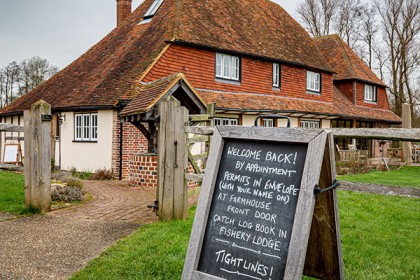 WELCOME BACK!
BY APPOINTMENT
PERMITS IN ENVELOPE
(WITH YOUR NAME ON)
AT FARMHOUSE
FRONT DOOR
CATCH LOG BOOK IN
FISHERY LODGE
TIGHT LINES!